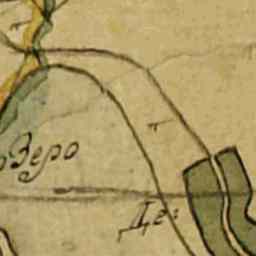 озеро
Де: